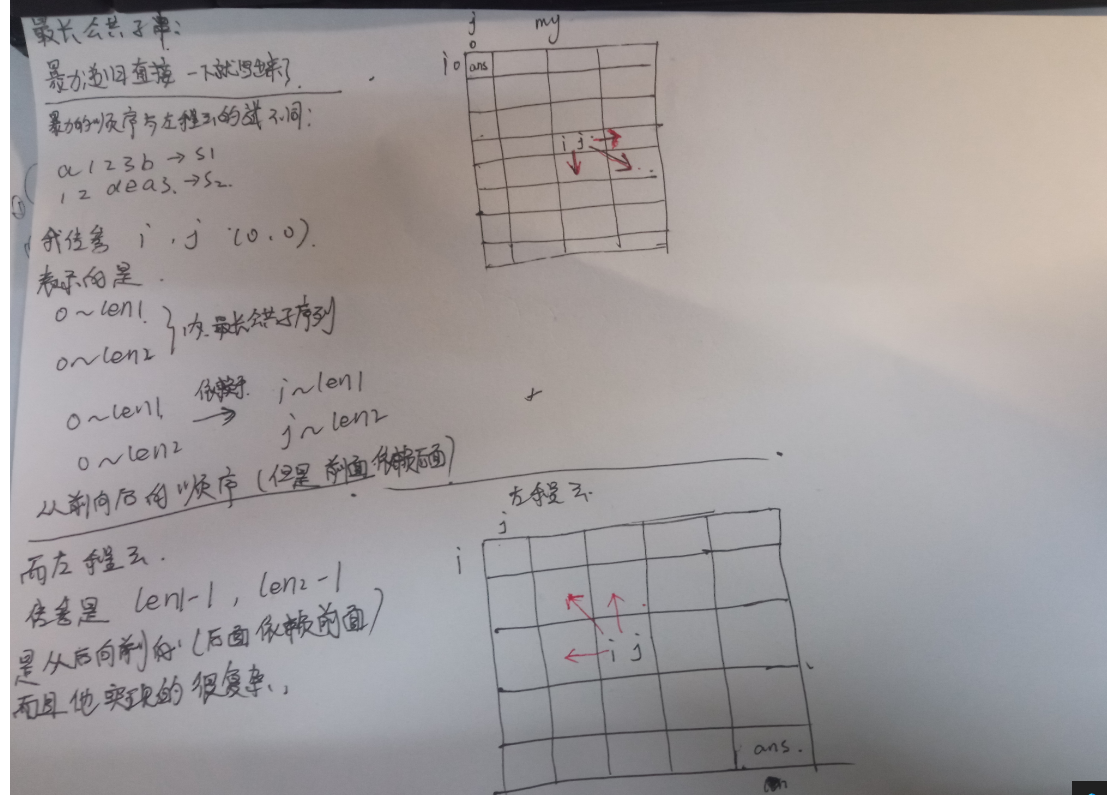 最长公共子串:
暴力递归直接一下就写出来了.
暴力的顺序与左程云的就不同:
a 1 2 3 b → s1
1 2 d e a 3. → s2.
①
我传参 i , j (0, 0).
表示的是.
0~len1
0~len2
内最长公共子序列
0~len1 依赖于 j~len1
0~len2 → j~len2
从前向后的顺序 (但是前面依赖后面)
而左程云.
传参是 len1-1, len2-1
是从后向前的 (后面依赖前面)
而且他实现的很复杂..
my
j
0
i 0 ans
i j
左程云.
j
i
i j
ans.